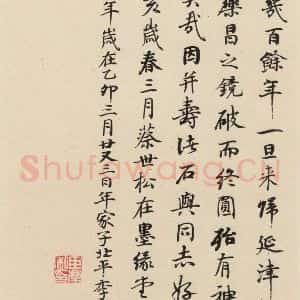 幾百餘年一旦來歸延津
樂昌之鏡破而終圓殆有神
哉因并壽諸石與同志好
亥歲春三月蔡世松在墨緣堂
年歲在乙卯三月廿又三日年家子北平李
Shufawang.CN